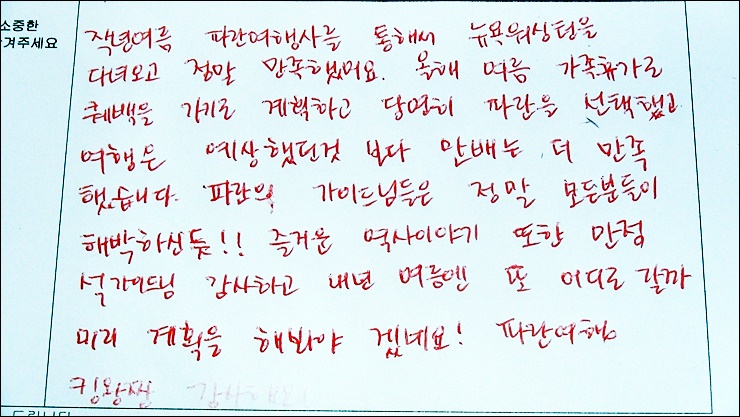 소중한
겨주세요
작년여름 파란여행사를 통해서 뉴욕워싱턴을
다녀오고 정말 만족했어요. 올해 여름 가족휴가로
퀘백을 가기로 계획하고 당연히 파란을 선택했고
여행은 예상했던것 보다 만배는 더 만족
했습니다. 파란의 가이드님들은 정말 모든분들이
해박하신듯!! 즐거운 역사이야기 또한 만점
석가이드님 감사하고 내년 여름엔 또 어디로 갈까
미리 계획을 해봐야 겠네요! 파란여행
킹왕짱 감사해요
드립니다